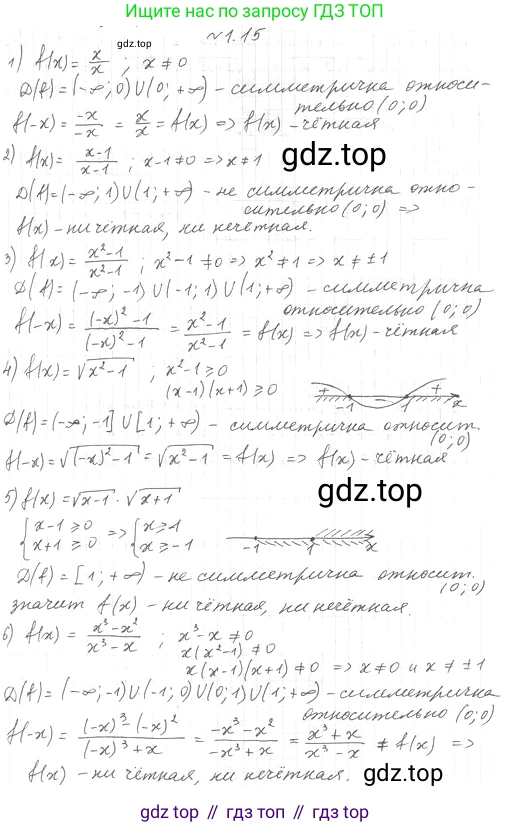 подпишись по запросу ГДЗ ТОП
№1.15
1) f(x) = x/x ; x ≠ 0
D(f) = (-∞; 0) ∪ (0; +∞) - симметрична относи-
тельно (0; 0)
f(-x) = -x/-x = x/x = f(x) => f(x) - чётная
2) f(x) = x-1/x-1 ; x-1 ≠ 0 => x ≠ 1
D(f) = (-∞; 1) ∪ (1; +∞) - не симметрична отно-
сительно (0; 0) =>
f(x) - ни чётная, ни нечётная.
3) f(x) = x²-1/x²-1 ; x²-1 ≠ 0 => x² ≠ 1 => x ≠ ±1
D(f) = (-∞; -1) ∪ (-1; 1) ∪ (1; +∞) - симметрична
относительно (0; 0)
f(-x) = (-x)²-1/(-x)²-1 = x²-1/x²-1 = f(x) => f(x) - чётная
4) f(x) = √x²-1 ; x²-1 ≥ 0
(x-1)(x+1) ≥ 0
+ -1 - 1 + x
D(f) = (-∞; -1] ∪ [1; +∞) - симметрична относит.
(0; 0)
f(-x) = √(-x)²-1 = √x²-1 = f(x) => f(x) - чётная
5) f(x) = √x-1 · √x+1
{x-1 ≥ 0 => {x ≥ 1
{x+1 ≥ 0 {x ≥ -1
-1 1 x
D(f) = [1; +∞) - не симметрична относит.
(0; 0)
значит f(x) - ни чётная, ни нечётная.
6) f(x) = x³-x²/x³-x ; x³-x ≠ 0
x(x²-1) ≠ 0
x(x-1)(x+1) ≠ 0 => x ≠ 0 и x ≠ ±1
D(f) = (-∞; -1) ∪ (-1; 0) ∪ (0; 1) ∪ (1; +∞) - симметрична
относительно (0; 0)
f(-x) = (-x)³-(-x)²/(-x)³+x = -x³-x²/-x³+x = x³+x/x³-x ≠ f(x) =>
f(x) - ни чётная, ни нечётная.
gdz.top
gdz.top
gdz.top
gdz.top
gdz.top
gdz.top // гдз топ // gdz.top